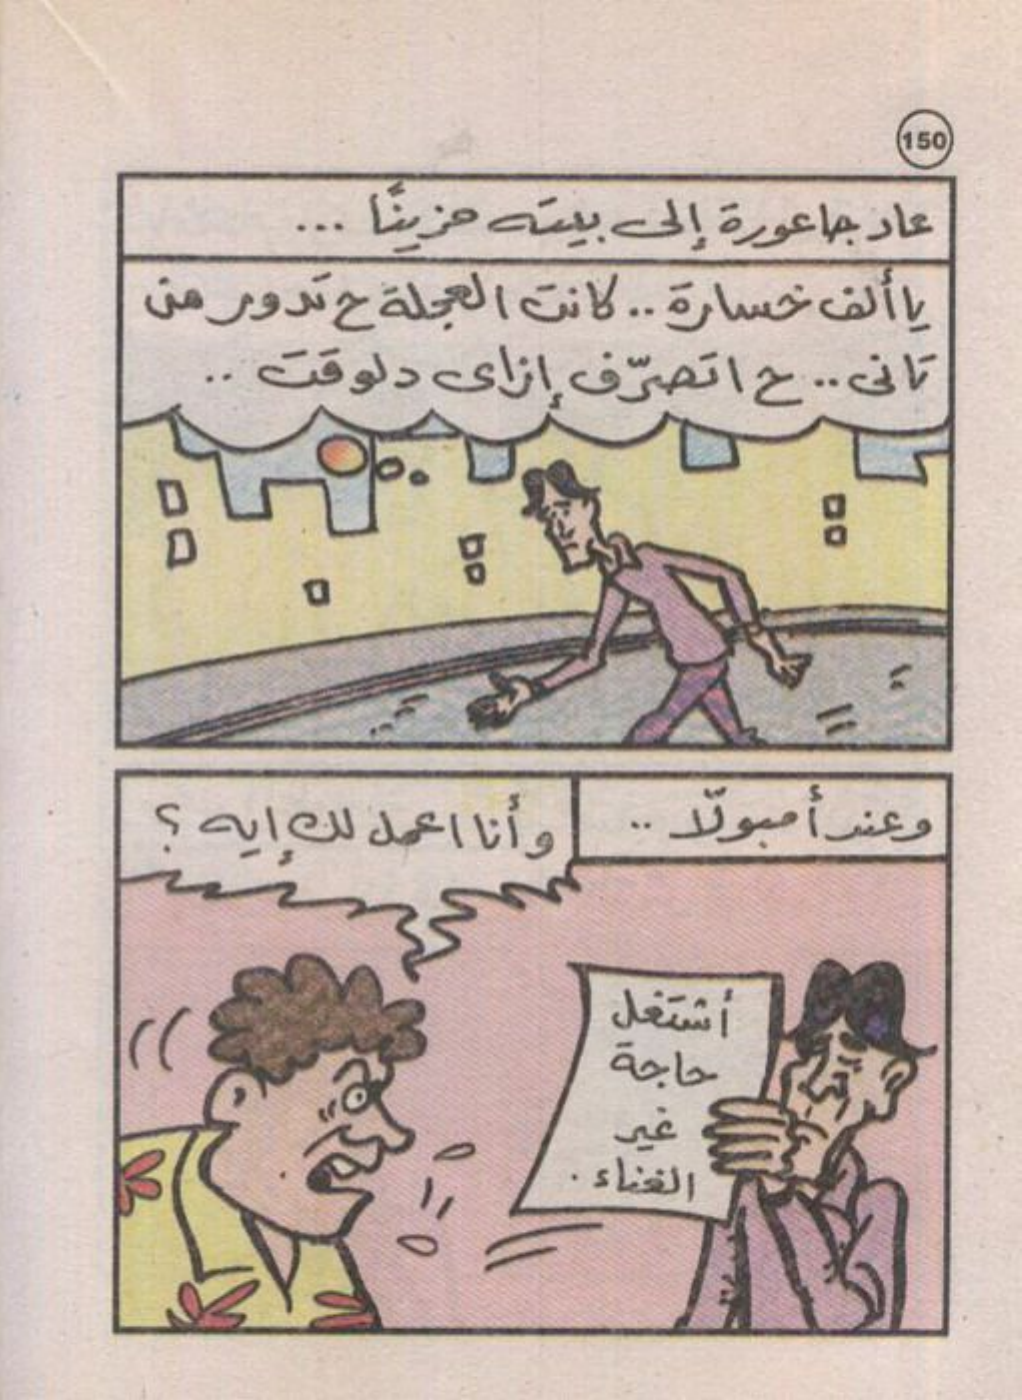 150
عاد جاعورة إلى بيته حزينًا ...
يا ألف خسارة .. كانت العجلة ح تدور من
تانى .. ح اتصرّف إزاى دلوقت ..
وعند أمبولّا ..
وأنا اعمل لك إيه ؟
أشتغل
حاجة
غير
الغناء .